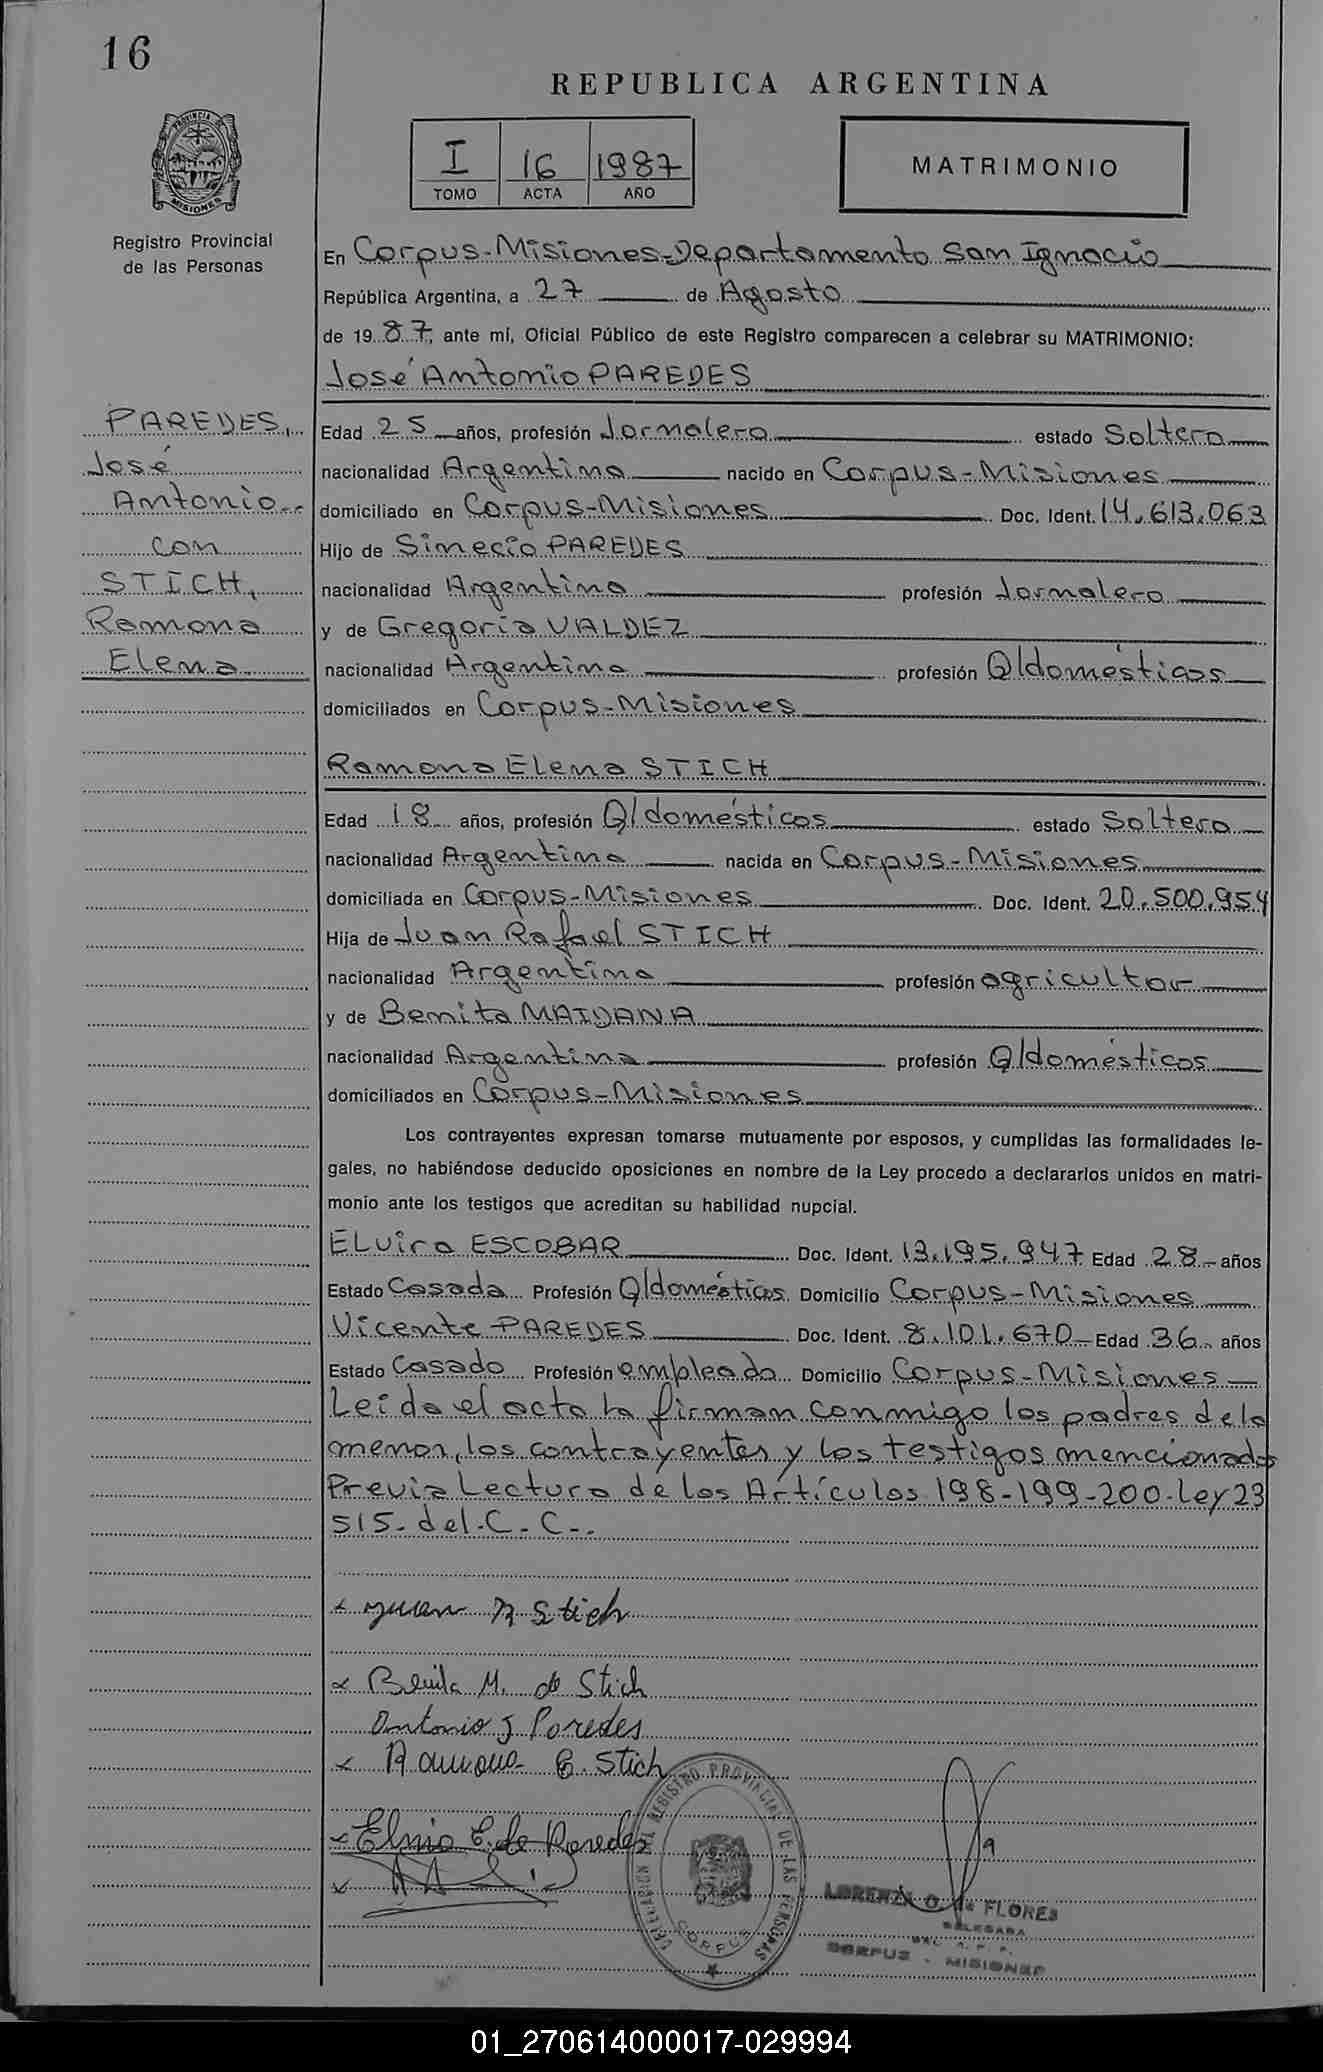 16
REPUBLICA ARGENTINA
I 16 1987
TOMO ACTA AÑO
MATRIMONIO
PROVINCIA DE MISIONES
Registro Provincial
de las Personas
En Corpus-Misiones-Departamento San Ignacio
República Argentina, a 27 de Agosto
de 1987, ante mí, Oficial Público de este Registro comparecen a celebrar su MATRIMONIO:
José Antonio PAREDES
PAREDES,
José
Antonio--
con
STICH,
Ramona
Elena
Edad 25 años, profesión Jornalero estado Soltero
nacionalidad Argentina nacido en Corpus-Misiones
domiciliado en Corpus-Misiones Doc. Ident. 14.613.063
Hijo de Simecio PAREDES
nacionalidad Argentina profesión Jornalero
y de Gregoria VALDEZ
nacionalidad Argentina profesión Q/domésticos
domiciliados en Corpus-Misiones
Ramona Elena STICH
Edad 18 años, profesión Q/domésticos estado Soltera
nacionalidad Argentina nacida en Corpus-Misiones
domiciliada en Corpus-Misiones Doc. Ident. 20.500.954
Hija de Juan Rafael STICH
nacionalidad Argentina profesión agricultor
y de Benita MAIDANA
nacionalidad Argentina profesión Q/domésticos
domiciliados en Corpus-Misiones
Los contrayentes expresan tomarse mutuamente por esposos, y cumplidas las formalidades le-
gales, no habiéndose deducido oposiciones en nombre de la Ley procedo a declararlos unidos en matri-
monio ante los testigos que acreditan su habilidad nupcial.
ELvira ESCOBAR Doc. Ident. 13.195.947 Edad 28 años
Estado Casada Profesión Q/domésticos Domicilio Corpus-Misiones
Vicente PAREDES Doc. Ident. 8.101.670 Edad 36 años
Estado Casado Profesión empleado Domicilio Corpus-Misiones
Leída el acta la firman conmigo los padres de la
menor, los contrayentes y los testigos mencionados
Previa Lectura de los Artículos 198-199-200-Ley 23
515- del-C-C-.
x Juan R Stich
x Benita M. de Stich
Antonio J Paredes
x Ramona E. Stich
x Elvira E. de Paredes
x
DELEGACION DEL REGISTRO PROVINCIAL DE LAS PERSONAS
CORPUS
LORENZA O. de FLORES
DELEGADA
DEL R. P. P.
CORPUS - MISIONES
01_270614000017-029994